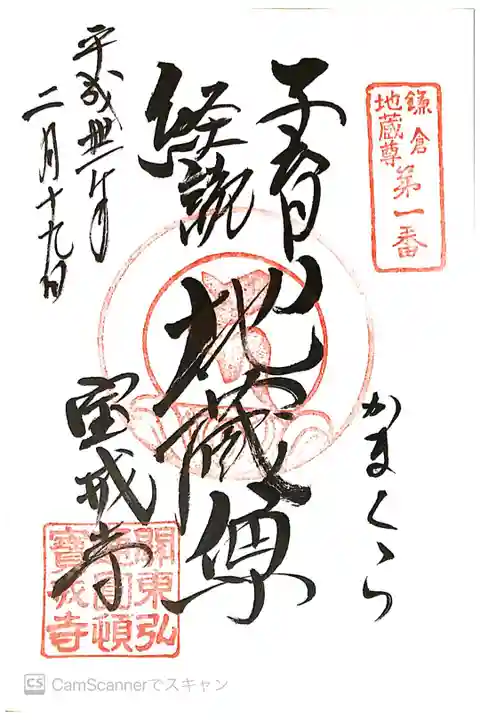 鎌倉
地蔵尊
第一番
かまくら
子育
経読
地蔵尊
宝戒寺
平成丗一年
二月十九日
關東弘
通圓頓
寶戒寺
CS CamScannerでスキャン